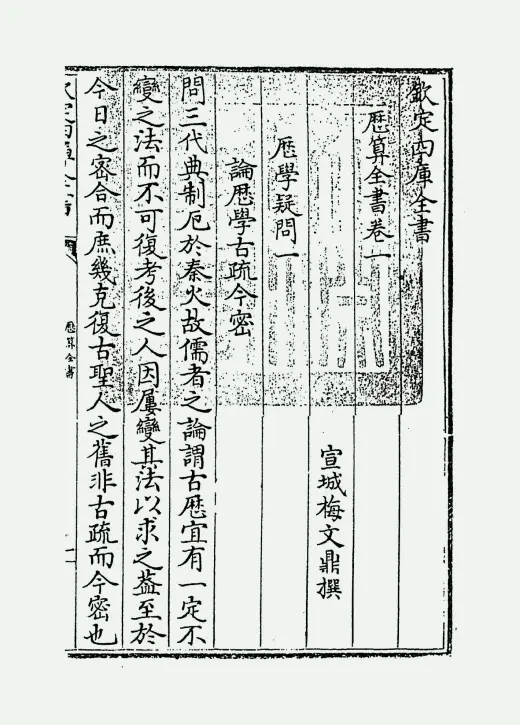 欽定四庫全書
厯算全書卷一
宣城梅文鼎撰
厯學疑問一
論厯學古疏今密
問三代典制厄於秦火故儒者之論謂古厯宜有一定不
變之法而不可復考後之人因屢變其法以求之葢至於
今日之密合而庶幾克復古聖人之舊非古疏而今密也
厯算全書